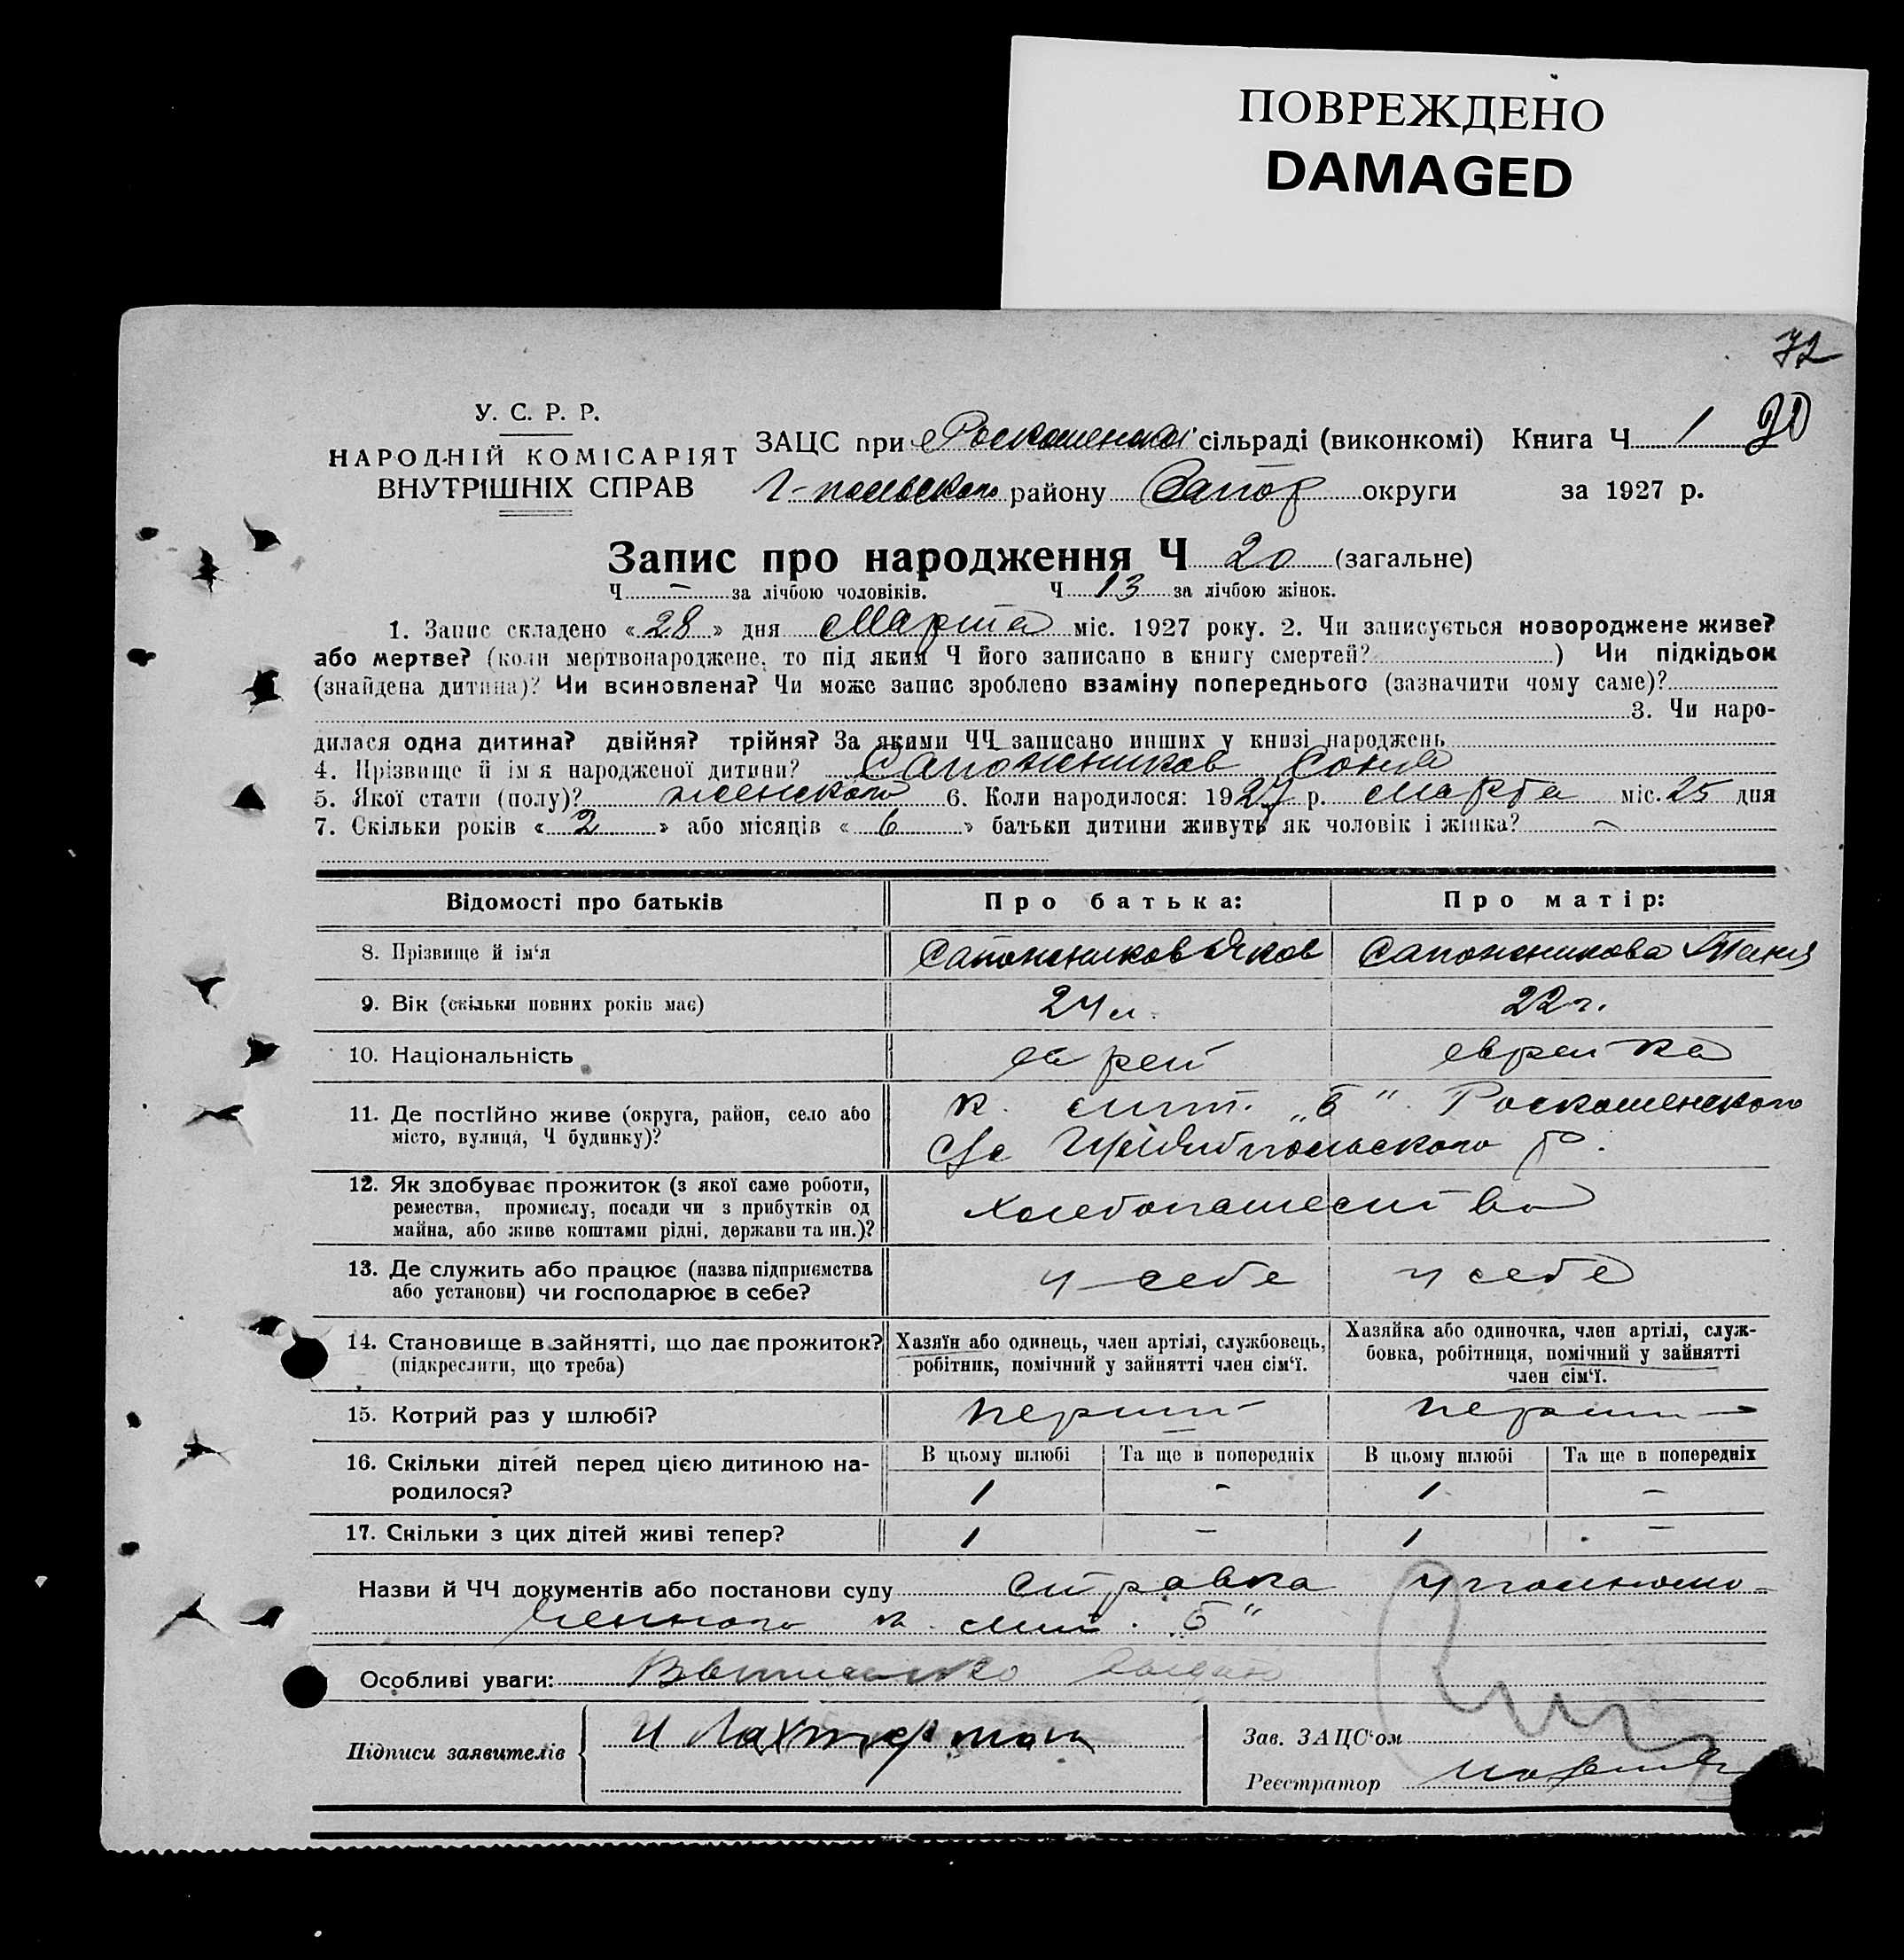 ПОВРЕЖДЕНО
DAMAGED
72
У. С. Р. Р.
НАРОДНІЙ КОМІСАРІЯТ
ВНУТРІШНІХ СПРАВ
ЗАЦС при Роскошенской сільраді (виконкомі) Книга Ч 1 20
районy Запор округи за 1927 р.
Запис про народження Ч 20 (загальне)
Ч – за лічбою чоловіків. Ч 13 за лічбою жінок.
1. Запис складено «28» дня Марта міс. 1927 року. 2. Чи записується новороджене живе?
або мертве? (коли мертвонароджене, то під яким Ч його записано в книгу смертей? ) Чи підкідьок
(знайдена дитина)? Чи всиновлена? Чи може запис зроблено взаміну попереднього (зазначити чому саме)?
3. Чи наро-
дилася одна дитина? двійня? трійня? За якими ЧЧ записано инших у книзі народжень
4. Прізвище й ім'я народженої дитини? Сапожников Соня
5. Якої стати (полу)? женского 6. Коли народилося: 1927 р. марта міс. 25 дня
7. Скільки років «2» або місяців «6» батьки дитини живуть як чоловік і жінка? –
Відомості про батьків Про батька: Про матір:
8. Прізвище й ім'я Сапожников Яков Сапожникова Таня
9. Вік (скільки повних років має) 24 л. 22 г.
10. Національність еврей еврейка
11. Де постійно живе (округа, район, село або
місто, вулиця, Ч будинку)?
к. смт. „б“ Роскошенского
с/с польского р.
12. Як здобуває прожиток (з якої саме роботи,
ремества, промислу, посади чи з прибутків од
майна, або живе коштами рідні, держави та ин.)?
хлебопашество
13. Де служить або працює (назва підприємства
або установи) чи господарює в себе?
у себе у себе
14. Становище в зайнятті, що дає прожиток?
(підкреслити, що треба)
Хазяїн або одинець, член артілі, службовець,
робітник, помічний у зайнятті член сім'ї.
Хазяйка або одиночка, член артілі, служ-
бовка, робітниця, помічний у зайнятті
член сім'ї.
15. Котрий раз у шлюбі? перший перший
16. Скільки дітей перед цією дитиною на-
родилося?
В цьому шлюбі Та ще в попередніх В цьому шлюбі Та ще в попередніх
1 – 1 –
17. Скільки з цих дітей живі тепер? 1 – 1 –
Назви й ЧЧ документів або постанови суду справка уполномо-
ченного к. смт. „б“
Особливі уваги: Выписка
Підписи заявителів И Лахтерман
Зав. ЗАЦС'ом
Реєстратор